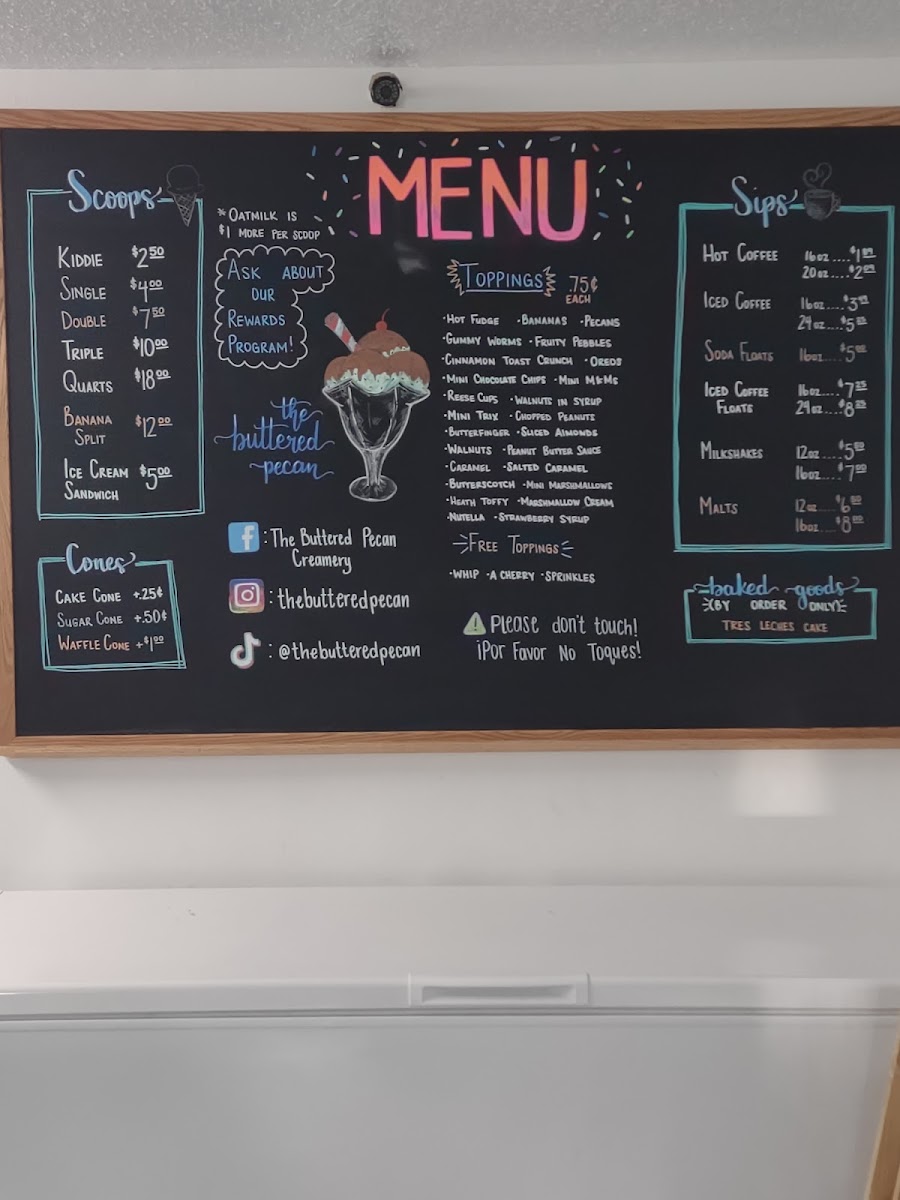 MENU
Scoops
KIDDIE $2.50
SINGLE $4.00
DOUBLE $7.50
TRIPLE $10.00
QUARTS $18.00
BANANA SPLIT $12.00
ICE CREAM SANDWICH $5.00
Cones
CAKE CONE +.25¢
SUGAR CONE +.50¢
WAFFLE CONE +$1.00
*OATMILK IS
$1 MORE PER SCOOP
ASK ABOUT
OUR
REWARDS
PROGRAM!
the
buttered
pecan
f : The Buttered Pecan
Creamery
: thebutteredpecan
: @thebutteredpecan
TOPPINGS .75¢
EACH
·HOT FUDGE ·BANANAS ·PECANS
·GUMMY WORMS ·FRUITY PEBBLES
·CINNAMON TOAST CRUNCH ·OREOS
·MINI CHOCOLATE CHIPS ·MINI M&MS
·REESE CUPS ·WALNUTS IN SYRUP
·MINI TRIX ·CHOPPED PEANUTS
·BUTTERFINGER ·SLICED ALMONDS
·WALNUTS ·PEANUT BUTTER SAUCE
·CARAMEL ·SALTED CARAMEL
·BUTTERSCOTCH ·MINI MARSHMALLOWS
·HEATH TOFFY ·MARSHMALLOW CREAM
·NUTELLA ·STRAWBERRY SYRUP
FREE TOPPINGS
·WHIP ·A CHERRY ·SPRINKLES
! Please don't touch!
¡Por Favor No Toques!
Sips
HOT COFFEE 16oz....
20oz....
ICED COFFEE 16oz....
24oz....
SODA FLOATS 16oz....$5.00
ICED COFFEE FLOATS 16oz....$7.25
24oz....
MILKSHAKES 12oz....
16oz....$7.00
MALTS 12oz....
16oz....
baked goods
(BY ORDER ONLY)
TRES LECHES CAKE